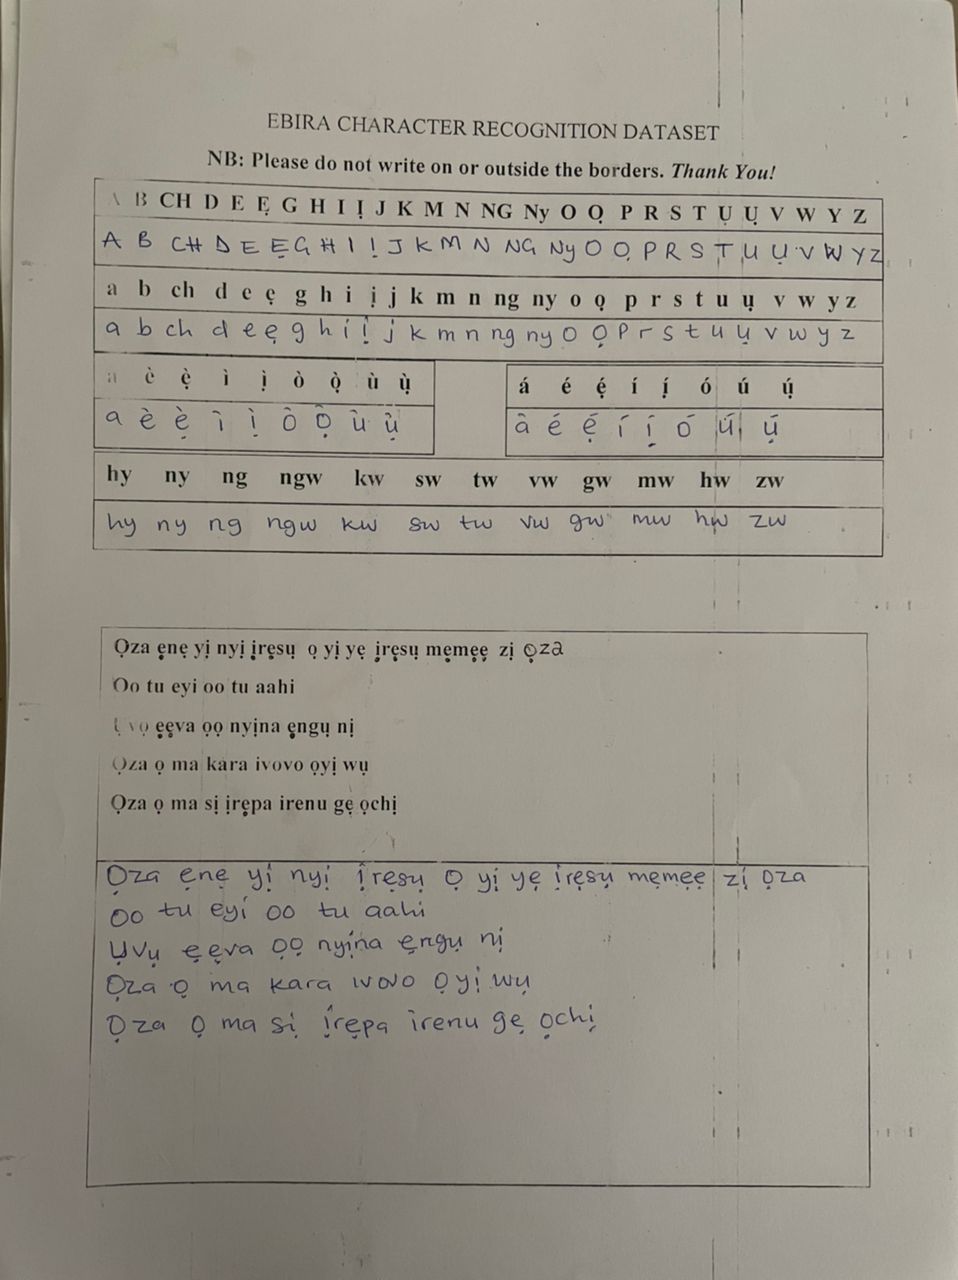 EBIRA CHARACTER RECOGNITION DATASET
NB: Please do not write on or outside the borders. Thank You!
A B CH D E Ẹ G H I Ị J K M N NG Ny O Ọ P R S T Ụ Ụ V W Y Z
A B CH D E Ẹ G H I Ị J K M N NG Ny O Ọ P R S T U Ụ V W Y Z
a b ch d e ẹ g h i ị j k m n ng ny o ọ p r s t u ụ v w y z
a b ch d e ẹ g h i ị j k m n ng ny o ọ p r s t u ụ v w y z
a è ẹ̀ ì ị̀ ò ọ̀ ù ụ̀
a è ẹ̀ ì ị̀ ò ọ̀ ù ụ̀
á é ẹ́ í ị́ ó ú ụ́
à é ẹ́ í ị́ ó ú ụ́
hy ny ng ngw kw sw tw vw gw mw hw zw
hy ny ng ngw kw sw tw vw gw mw hw zw
Ọza ẹnẹ yị nyị ịrẹsụ ọ yị yẹ ịrẹsụ mẹmẹẹ zị ọza
Oo tu eyi oo tu aahi
vọ ẹẹva ọọ nyịna ẹngụ nị
Ọza ọ ma kara ivovo ọyị wụ
Ọza ọ ma sị ịrẹpa irenu gẹ ọchị
Ọza ẹnẹ yị nyị ịrẹsụ ọ yị yẹ ịrẹsụ mẹmẹẹ zị ọza
Oo tu eyi oo tu aahi
Ụvụ ẹẹva ọọ nyịna ẹngụ nị
Ọza ọ ma kara ivovo ọyị wụ
Ọza ọ ma sị ịrẹpa irenu gẹ ọchị